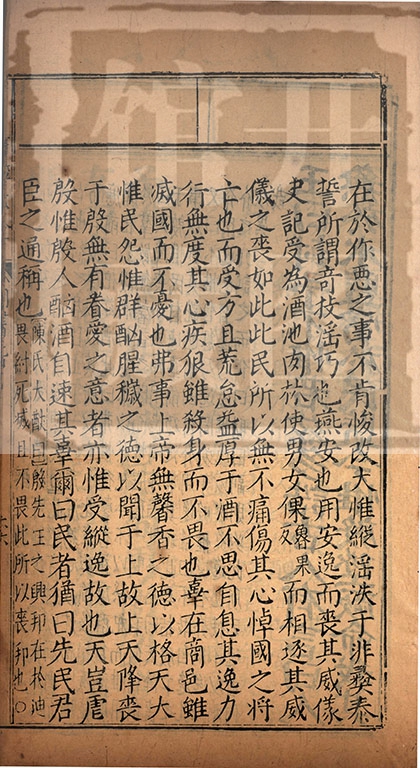 在於作恶之事不肯悛改大惟縱滛泆于非彝泰
誓所謂竒技滛巧也燕安也用安逸而喪其威儀
史記受為酒池肉林使男女倮魯果反而相逐其威
儀之喪如此此民所以無不痛傷其心悼國之将
亡也而受方且荒怠益厚于酒不思自息其逸力
行無度其心疾狠雖殺身而不畏也辜在商邑雖
滅國而不憂也弗事上帝無馨香之德以格天大
惟民怨惟群酗腥穢之德以聞于上故上天降喪
于殷無有眷愛之意者亦惟受縱逸故也天豈虐
殷惟殷人酗酒自速其辜爾曰民者猶曰先民君
臣之通稱也陳氏大猷曰殷先王之興邦在於迪
畏紂死滅且不畏此所以喪邦也○